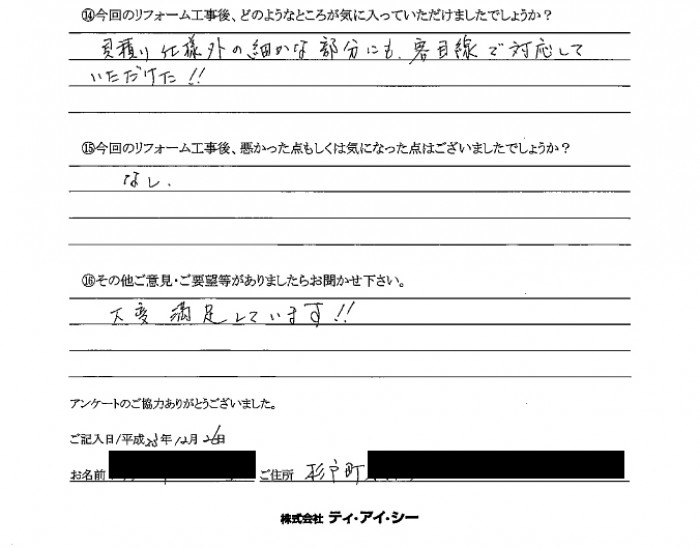 ⑭今回のリフォーム工事後、どのようなところが気に入っていただけましたでしょうか？
見積り仕様外の細かな部分にも、客目線で対応して
いただけた!!
⑮今回のリフォーム工事後、悪かった点もしくは気になった点はございましたでしょうか？
なし.
⑯その他ご意見・ご要望等がありましたらお聞かせ下さい。
大変満足しています!!
アンケートのご協力ありがとうございました。
ご記入日/平成28年12月26日
お名前 ご住所 杉戸町
株式会社 ティ・アイ・シー